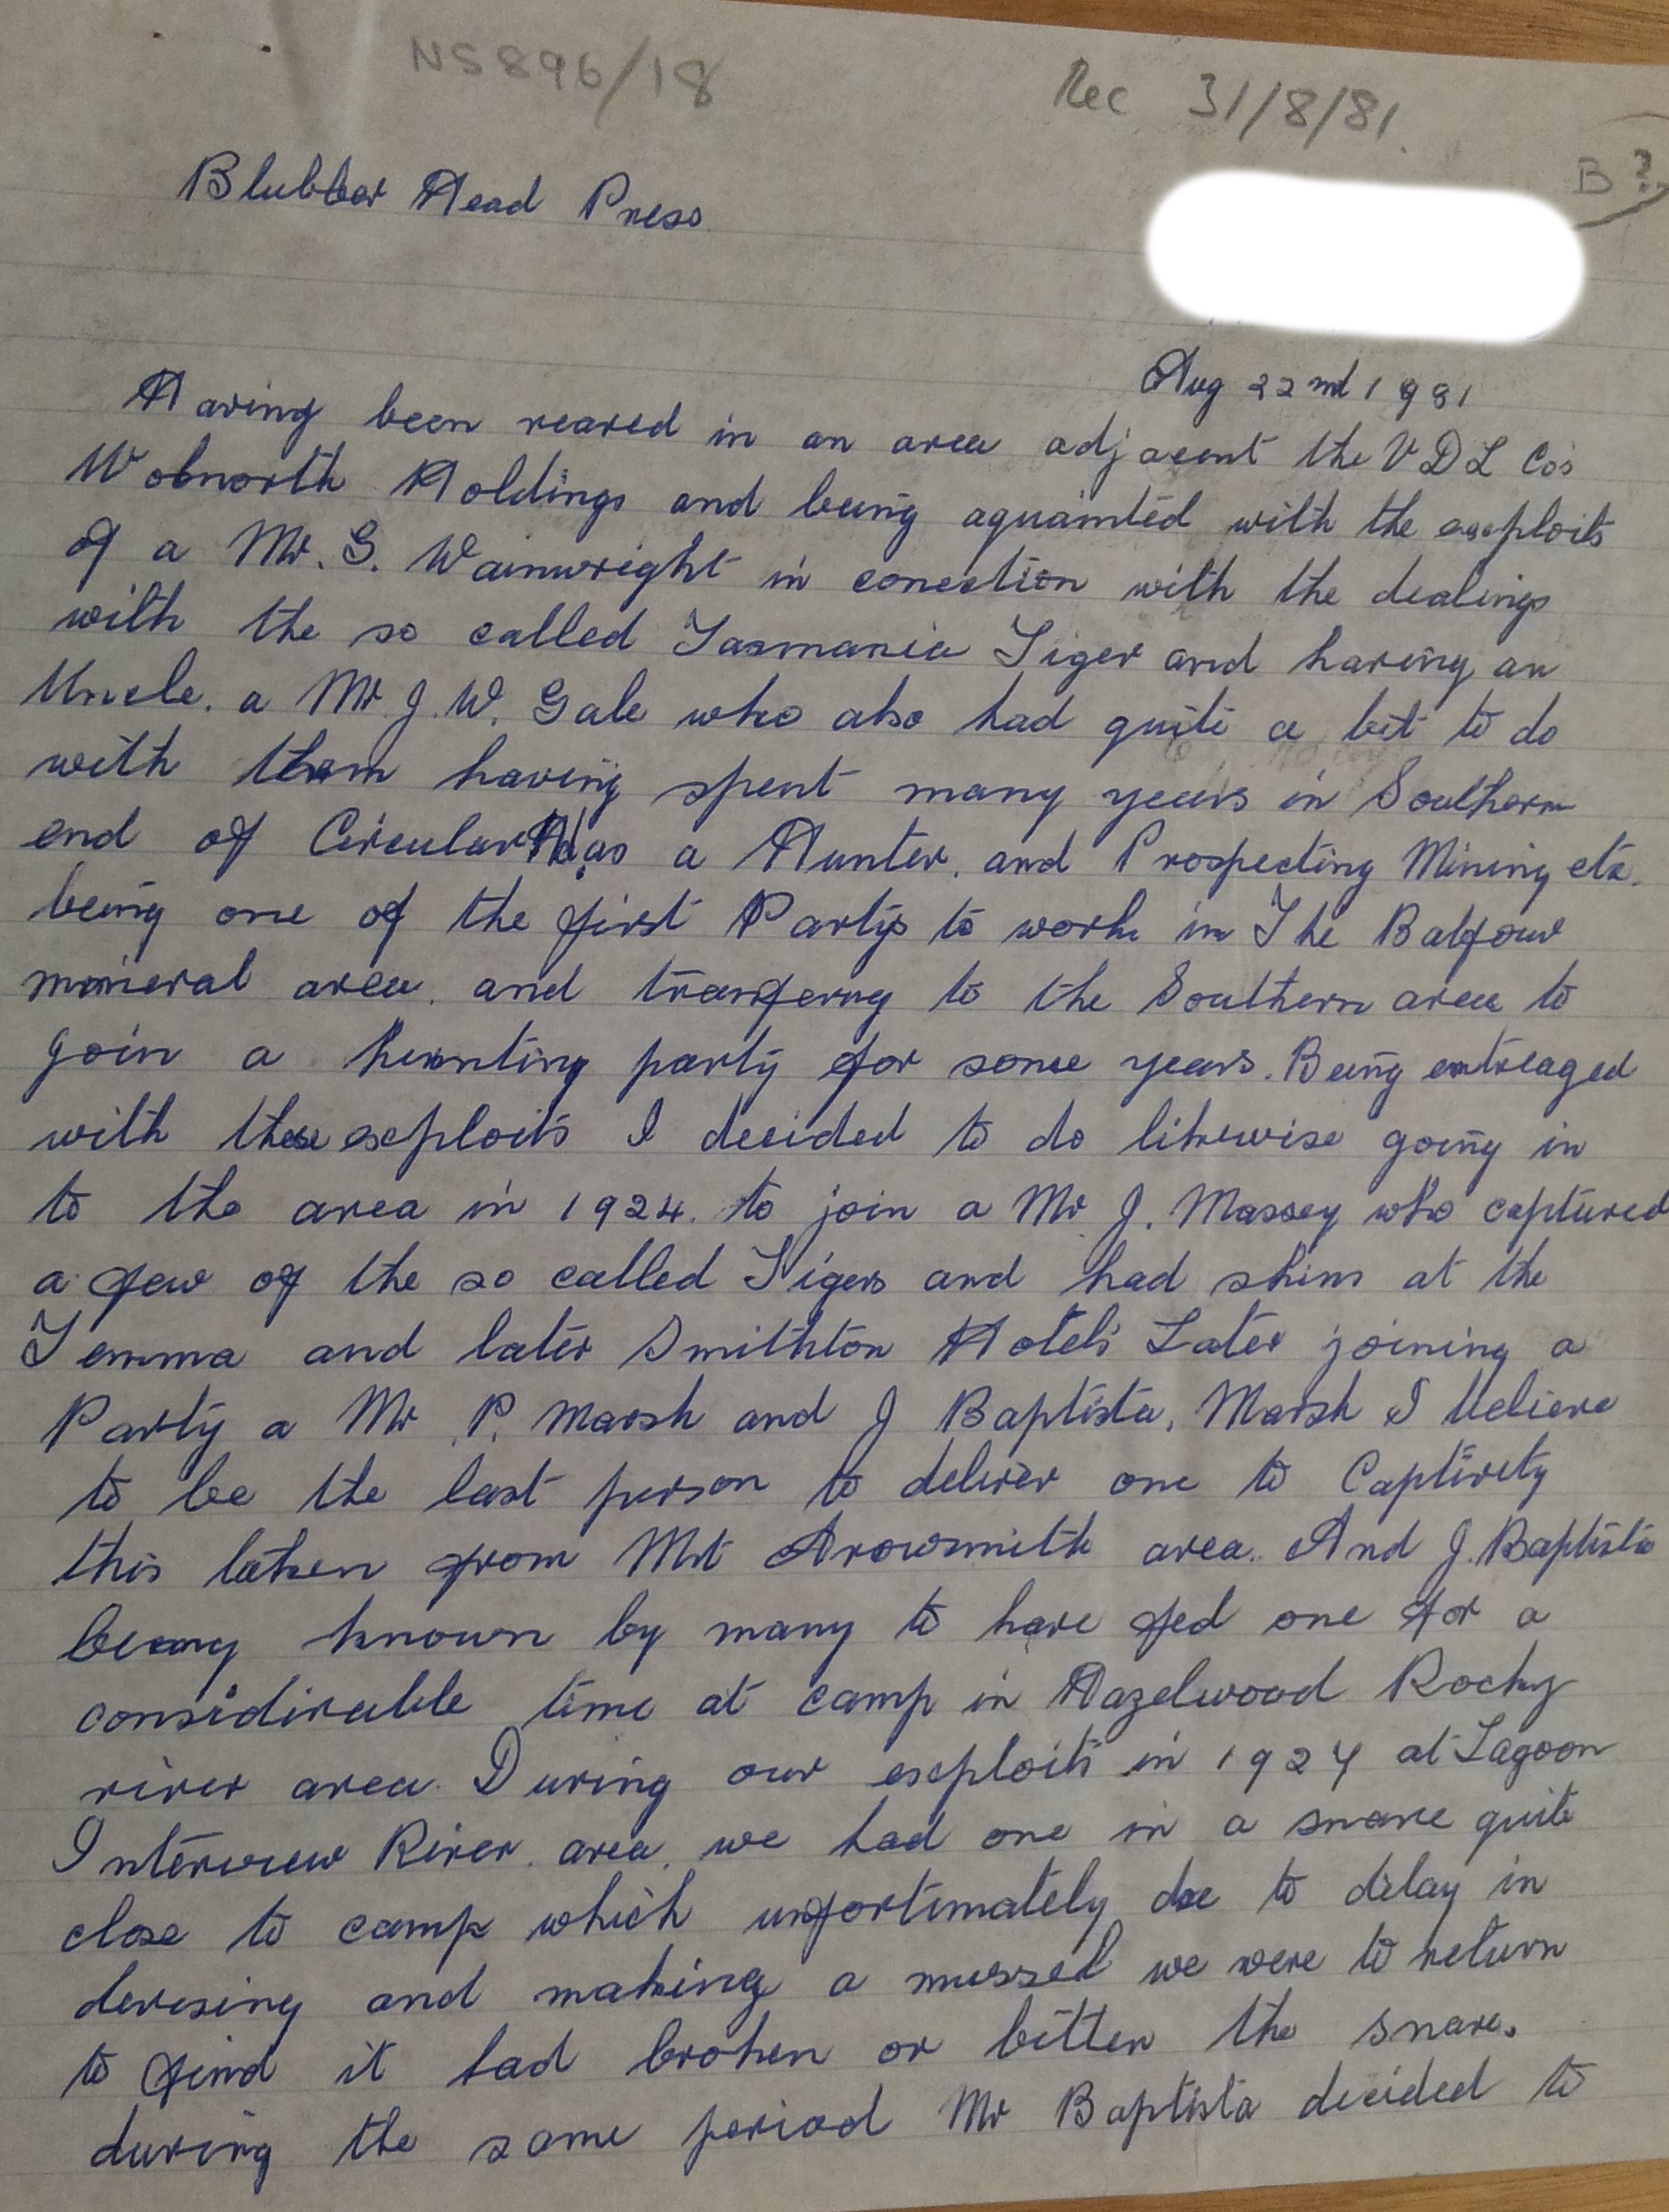 NS896/18
Rec 31/8/81.
B?
Blubber Head Press
Aug 22nd 1981
Having been reared in an area adjacent the VDL Co's
Wolnorth Holdings and being aquainted with the exploits
of a Mr. G. Wainwright in conection with the dealings
with the so called Tasmania Tiger and having an
Uncle. a Mr J. W. Gale who also had quite a bit to do
with them having spent many years in Southern
end of Circular Hd. as a Hunter. and Prospecting Mining etc.
being one of the first Partys to work in The Balfour
mineral area. and tranfering to the Southern area to
join a hunting party for some years. Being
with these exploits I decided to do likewise going in
to the area in 1924. to join a Mr J. Massey who captured
a few of the so called Tigers and had skins at the
Temma and later Smithton Hotels Later joining a
Party a Mr P. Marsh and J Baptista, Marsh I believe
to be the last person to deliver one to Captivity
this taken from Mt Arowsmith area. And J. Baptista
being known by many to have fed one for a
considirable time at camp in Hazelwood Rocky
river area. During our exploits in 1924 at Lagoon
Interview River. area. we had one in a snare quite
close to camp which unfortimately due to delay in
devising and making a mussel we were to return
to find it had broken or bitten the snare.
during the same period Mr Baptista decided to